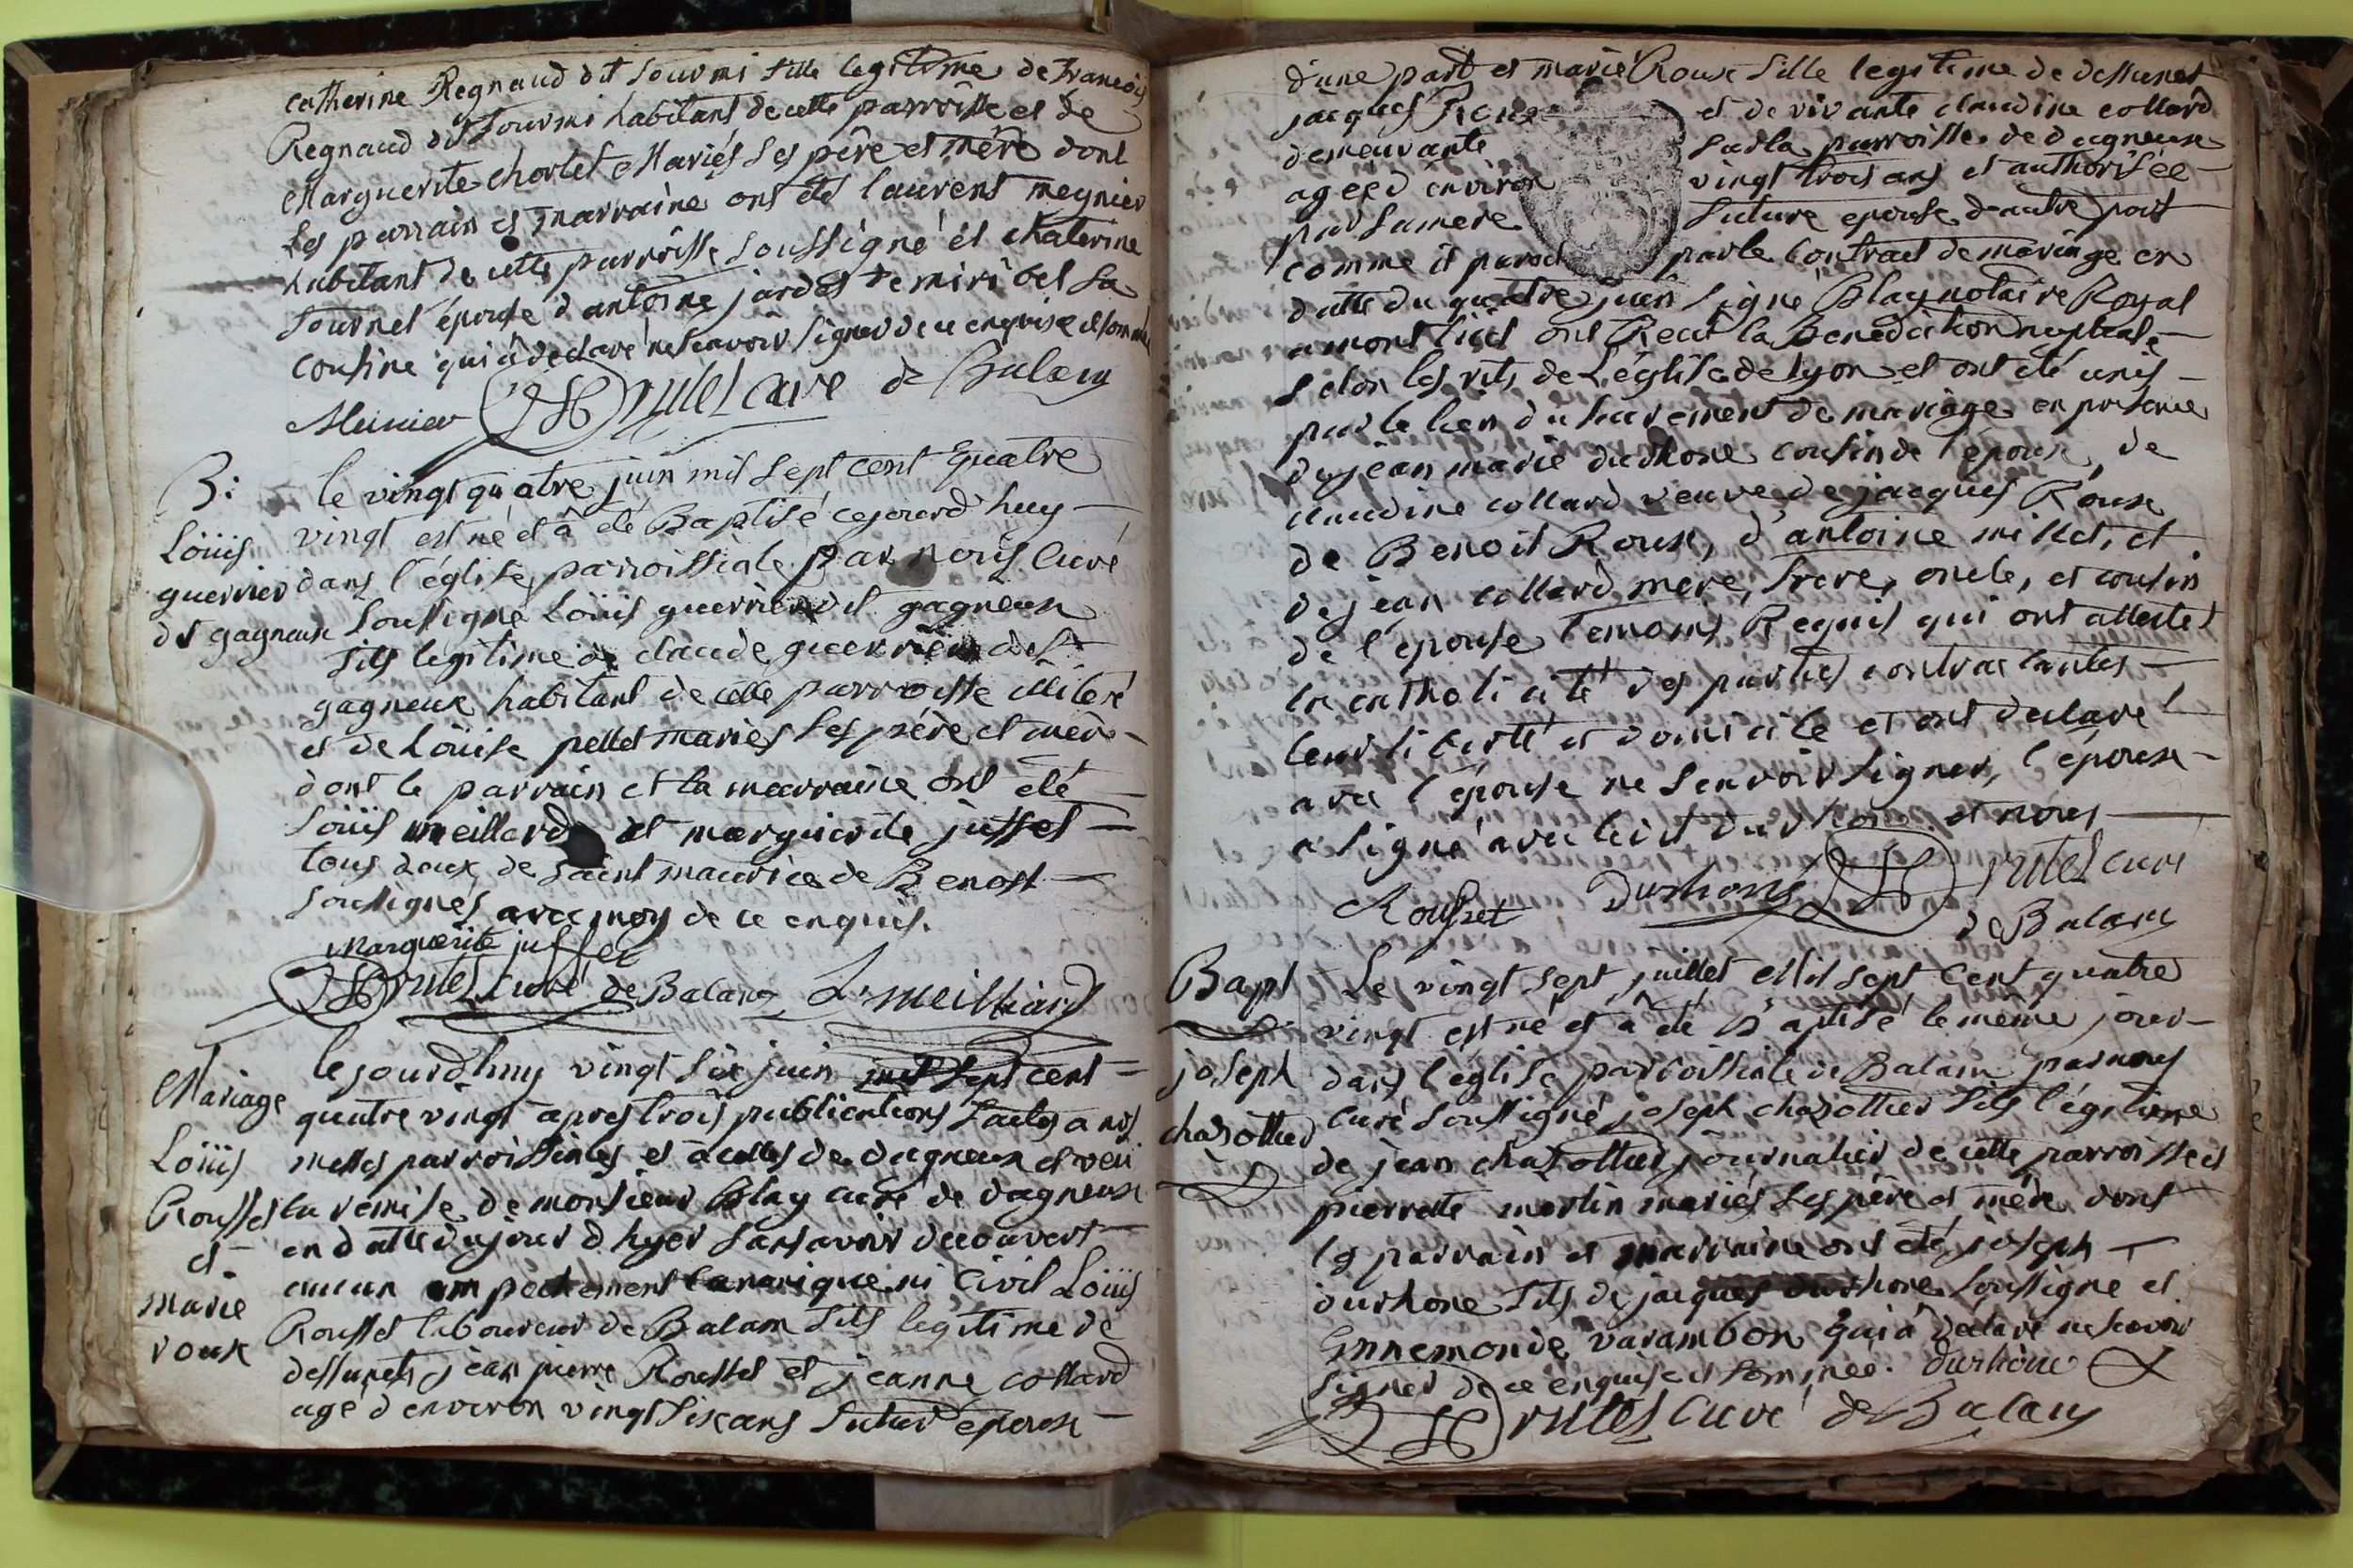 catherine Regnaud dit fourmi fille legitime de francois
Regnaud dit fourmi habitant de cette parroisse et de
Marguerite chortet Mariés ses père et mère dont
Les parrain et marraine ont été laurent meynier
habitant de cette parroisse soussigné et Katerine
fournet épouse d'antoine jardet de miribel sa
cousine qui à declaré ne scavoir signer de ce enquise et sommée
Meunier rutet curé de Balany
B: le vingt quatre juin mil sept cent quatre
vingt est né et à été Baptisé cejourd'huy
Loüis
guerrier dans l'église parroissiale par nous curé
dit gagneux soussigné Loüis guerrier dit gagneux
fils legitime de claude guerrier dit
gagneux habitant de cette parroisse illiteré
et de Loüise pellet mariés ses père et mère
dont le parrain et la marraine ont été
Loüis meillard et marguerite jusset
tous deux de saint maurice de Benost
soussignés avec moy de ce enquis.
marguerite jusset
rutet curé de Balany L. meilliard
Mariage
Loüis
Rousset
et
marie
roux
cejourdhuy vingt six juin mil sept cent
quatre vingt apres trois publications faites a nos
messes parroissiales et à celles de dagneux et veu
la remise de monsieur Blay curé de dagneux
en datte du jour d'hyer sans avoir decouvert
aucun empechement canonique ni civil Loüis
Rousset laboureur de Balan fils legitime de
deffunets jean pierre Rousset et jeanne collard
agé d'environ vingt six ans futur epoux
d'une part et marie Roux fille legitime de deffunet
jacques Roux et de vivante claudine collard
demeurante sur la parroisse de dagneux
agée d'environ vingt trois ans et authorisée
par sa mere future epouse d'autre part
comme il paroit par le contrat de mariage en
datte du quatre juin signé Blay notaire Royal
a montluel ont Recu la Benediction nuptiale
selon les rits de L'église de Lyon et ont été unis
par le lien du sacrement de mariage en presence
de jean marie durhone cousin de l'époux, de
claudine collard veuve de jacques Roux
de Benoit Roux, d'antoine millet, et
de jean collard mere, frere, oncle, et cousin
de l'épouse temoins Requis qui ont attestés
la catholicité des parties contractantes
leur liberté et domicile et ont declaré
avec l'épouse ne scavoir signer, l'époux
a signé avec ledit durhone et nous
Rousset Durhone rutet curé
de Balany
Bapt
joseph
chazottier
Le vingt sept juillet Mil sept cent quatre
vingt est né et à été Baptisé le même jour
dans l'église parroissiale de Balain par nous
curé soussigné joseph chazottier fils légitime
de jean chazottier journalier de cette parroisse et
pierrette martin mariés ses père et mère dont
les parrain et marraine ont été joseph
durhone fils de jacques durhone soussigné et
Ennemonde varambon qui à declaré ne scavoir
signer de ce enquise et sommée. durhône
rutet curé de Balany